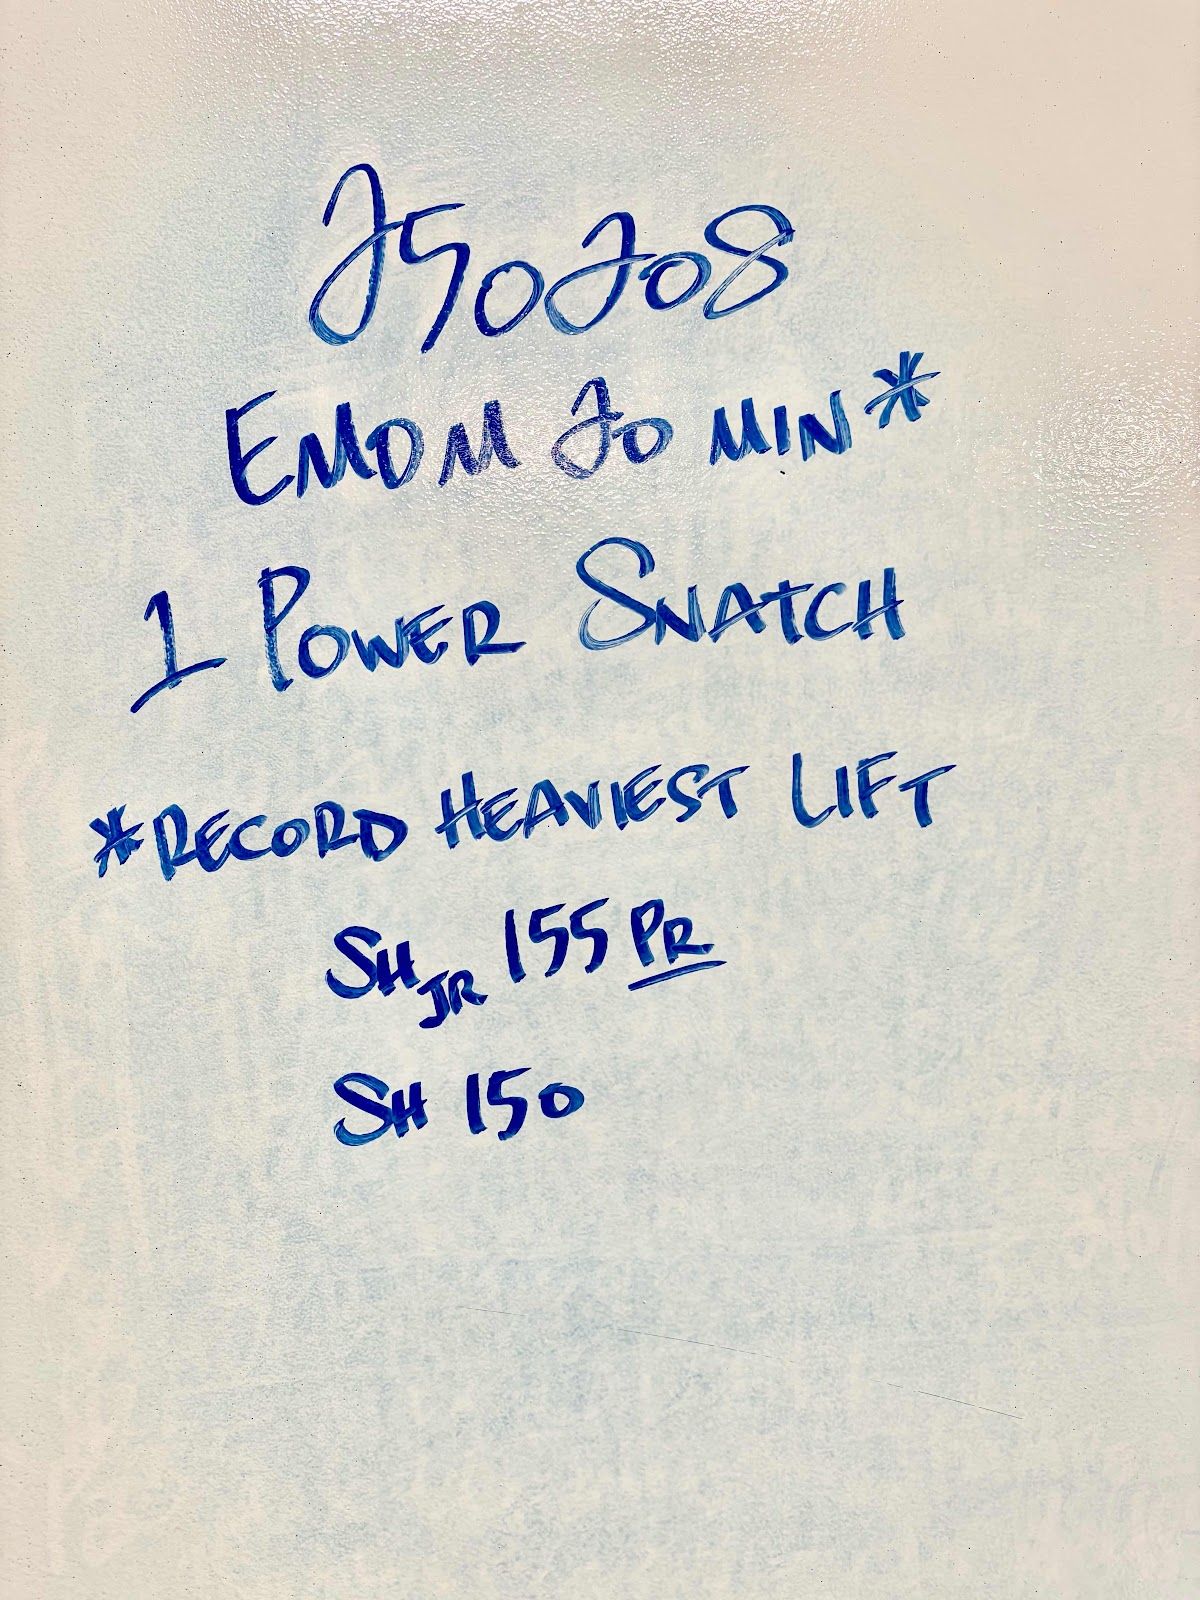 250208
EMOM 20 MIN*
1 POWER SNATCH
*RECORD HEAVIEST LIFT
SH JR 155 PR
SH 150